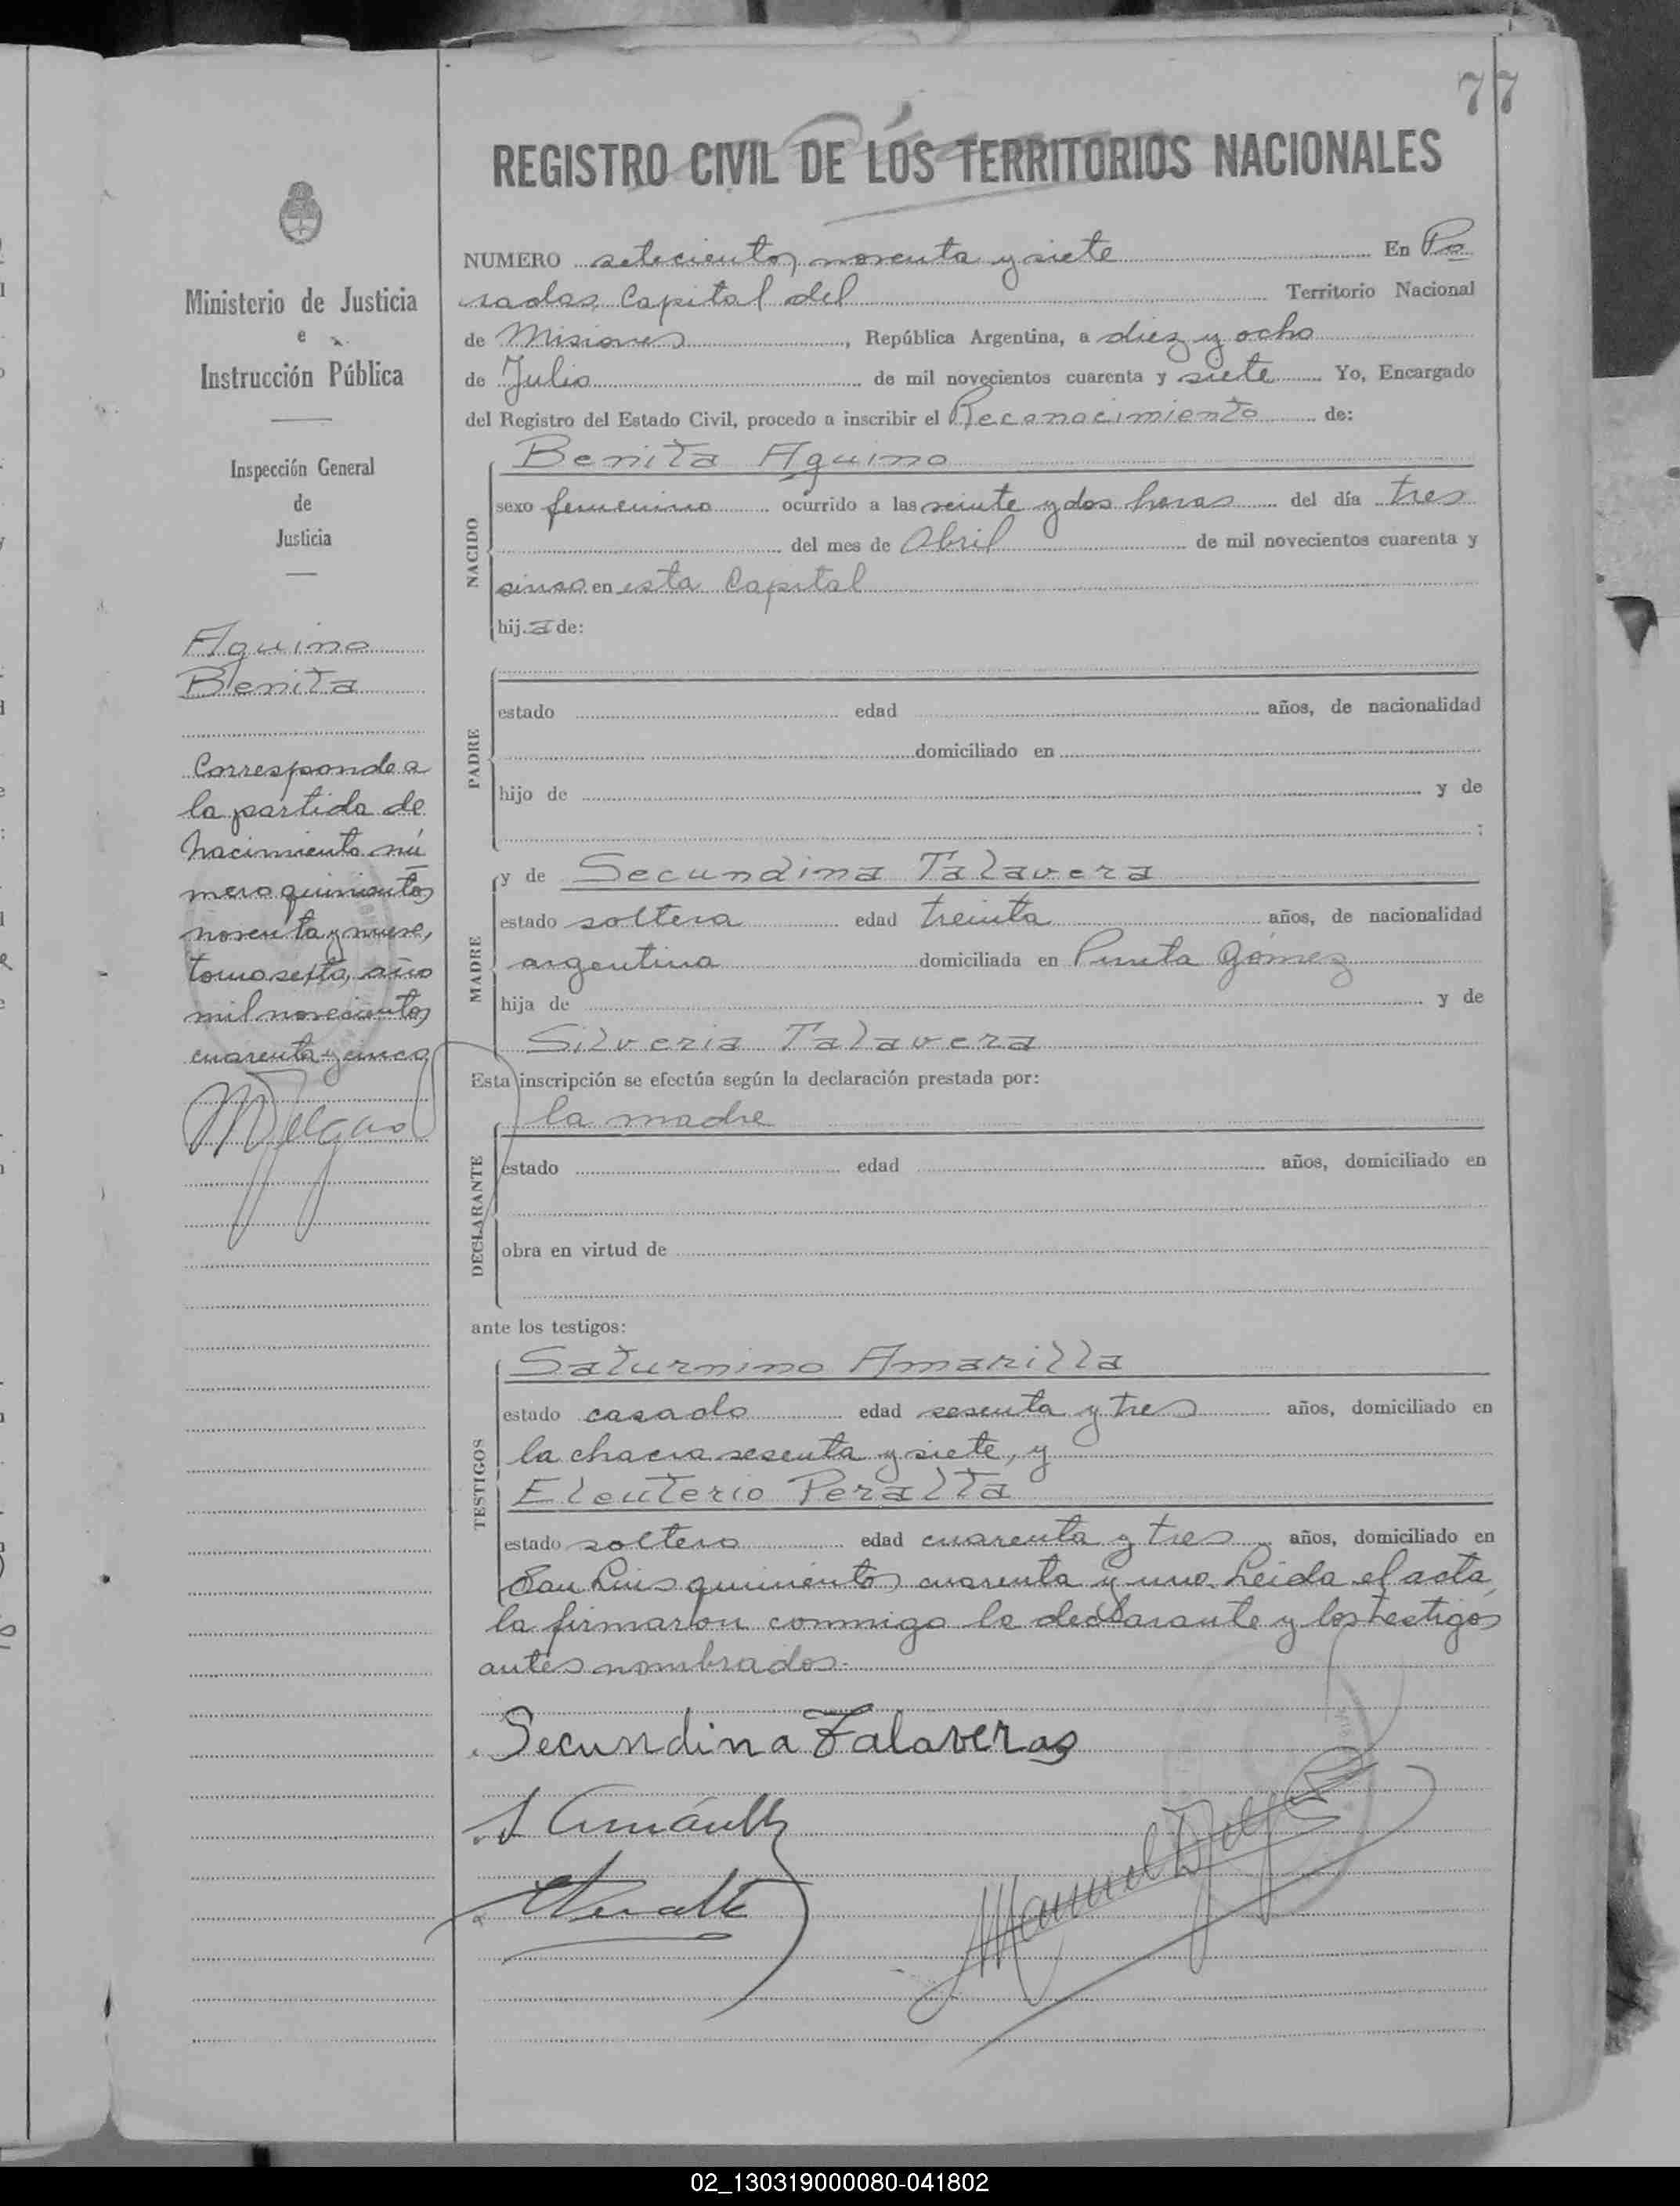 77
REGISTRO CIVIL DE LOS TERRITORIOS NACIONALES
Ministerio de Justicia
e
Instrucción Pública
Inspección General
de
Justicia
Aquino
Benita
Corresponde a
la partida de
nacimiento nú
mero quinientos
noventa y nueve,
tomo sexto, año
mil novecientos
cuarenta y cinco
NUMERO setecientos noventa y siete En Po
sadas, Capital del Territorio Nacional
de Misiones, República Argentina, a diez y ocho
de Julio de mil novecientos cuarenta y siete Yo, Encargado
del Registro del Estado Civil, procedo a inscribir el Reconocimiento de:
Benita Aquino
NACIDO
sexo femenino ocurrido a las veinte y dos horas del día tres
del mes de Abril de mil novecientos cuarenta y
sinco en esta Capital
hij a de:
PADRE
estado edad años, de nacionalidad
domiciliado en
hijo de y de
:
MADRE
y de Secundina Talavera
estado soltera edad treinta años, de nacionalidad
argentina domiciliada en Punta Gómez
hija de y de
Silveria Talavera
Esta inscripción se efectúa según la declaración prestada por:
la madre
DECLARANTE
estado edad años, domiciliado en
obra en virtud de
ante los testigos:
TESTIGOS
Saturnino Amarilla
estado casado edad sesenta y tres años, domiciliado en
la chacra sesenta y siete, y
Eleuterio Peralta
estado soltero edad cuarenta y tres años, domiciliado en
San Luis quinientos cuarenta y uno. Leida el acta,
la firmaron conmigo la declarante y los testigos
antes nombrados.
Secundina Talaveras
02_130319000080-041802